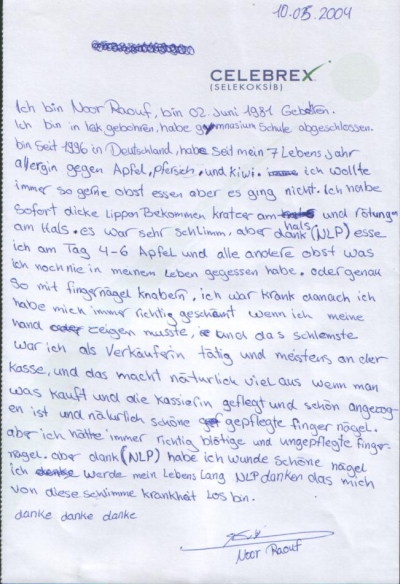 10.05.2004
CELEBREX
(SELEKOKSİB)
Ich bin Noor Raouf, bin 02. Juni 1981 Geboren.
Ich bin in Irak geboren, habe gymnasium Schule abgeschlossen.
bin seit 1996 in Deutschland, habe seit mein 7 Lebens jahr
allergin gegen Apfel, pfersich, und kiwi. ich wollte
immer so gerne obst essen aber es ging nicht. Ich habe
sofort dicke lippen Bekommen kratzer am und rötung
am Hals. es war sehr schlimm, aber dank hals (NLP) esse
ich am Tag 4-6 Apfel und alle andere obst was
ich noch nie in meinem Leben gegessen habe. oder genau
so mit fingernägel knabern, ich war krank danach ich
habe mich immer richtig geschämt wenn ich meine
hand zeigen musste, und das schlemste
war ich als Verkäuferin tätig und meistens an der
kasse, und das macht nätürlich viel aus wenn man
was kauft und die kassiefin geflegt und schön angezog-
en ist und nätürlich schöne gepflegte finger nägel.
aber ich hätte immer richtig blötige und ungepflegte finger-
nägel. aber dank (NLP) habe ich wunde schöne nägel
ich werde mein Lebens Lang NLP danken das mich
von diese schlimme krankheit Los bin.
danke danke danke
Noor Raouf